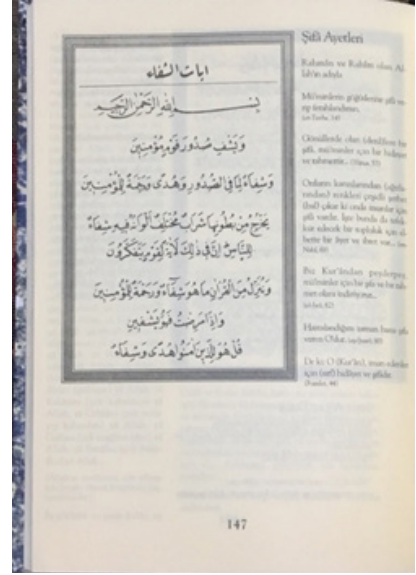 آيات الشفاء
بسم الله الرحمن الرحيم
وَيَشْفِ صُدُورَ قَوْمٍ مُؤْمِنِينَ
وَشِفَاءٌ لِمَا فِي الصُّدُورِ وَهُدًى وَرَحْمَةٌ لِلْمُؤْمِنِينَ
يَخْرُجُ مِنْ بُطُونِهَا شَرَابٌ مُخْتَلِفٌ أَلْوَانُهُ فِيهِ شِفَاءٌ
لِلنَّاسِ إِنَّ فِي ذَلِكَ لَآيَةً لِقَوْمٍ يَتَفَكَّرُونَ
وَنُنَزِّلُ مِنَ الْقُرْآنِ مَا هُوَ شِفَاءٌ وَرَحْمَةٌ لِلْمُؤْمِنِينَ
وَإِذَا مَرِضْتُ فَهُوَ يَشْفِينِ
قُلْ هُوَ لِلَّذِينَ آمَنُوا هُدًى وَشِفَاءٌ
Şifâ Ayetleri
Rahmân ve Rahîm olan Al-
lah'ın adıyla.
Mü'minlerin göğüslerine şifâ ve-
rip ferahlandırsın.
(et-Tevbe, 14)
Gönüllerde olan (dertlere) bir
şifâ, mü'minler için bir hidâyet
ve rahmettir... (Yûnus, 57)
Onların karınlarından
renkleri çeşitli şerbet
(bal) çıkar ki onda insanlar için
şifâ vardır. İşte bunda da
bir topluluk için el-
bette bir âyet ve ibret var...
Nahl, 69)
Biz Kur'ândan peyderpey,
mü'minler için bir şifâ ve bir rah-
met olanı indiriyoruz...
(el-İsrâ, 82)
Hastalandığım zaman bana şifâ
veren O'dur. (eş-Şuarâ, 80)
De ki: O (Kur'ân), iman edenler
için (sırf) hidâyet ve şifâdır.
(Fussilet, 44)
147